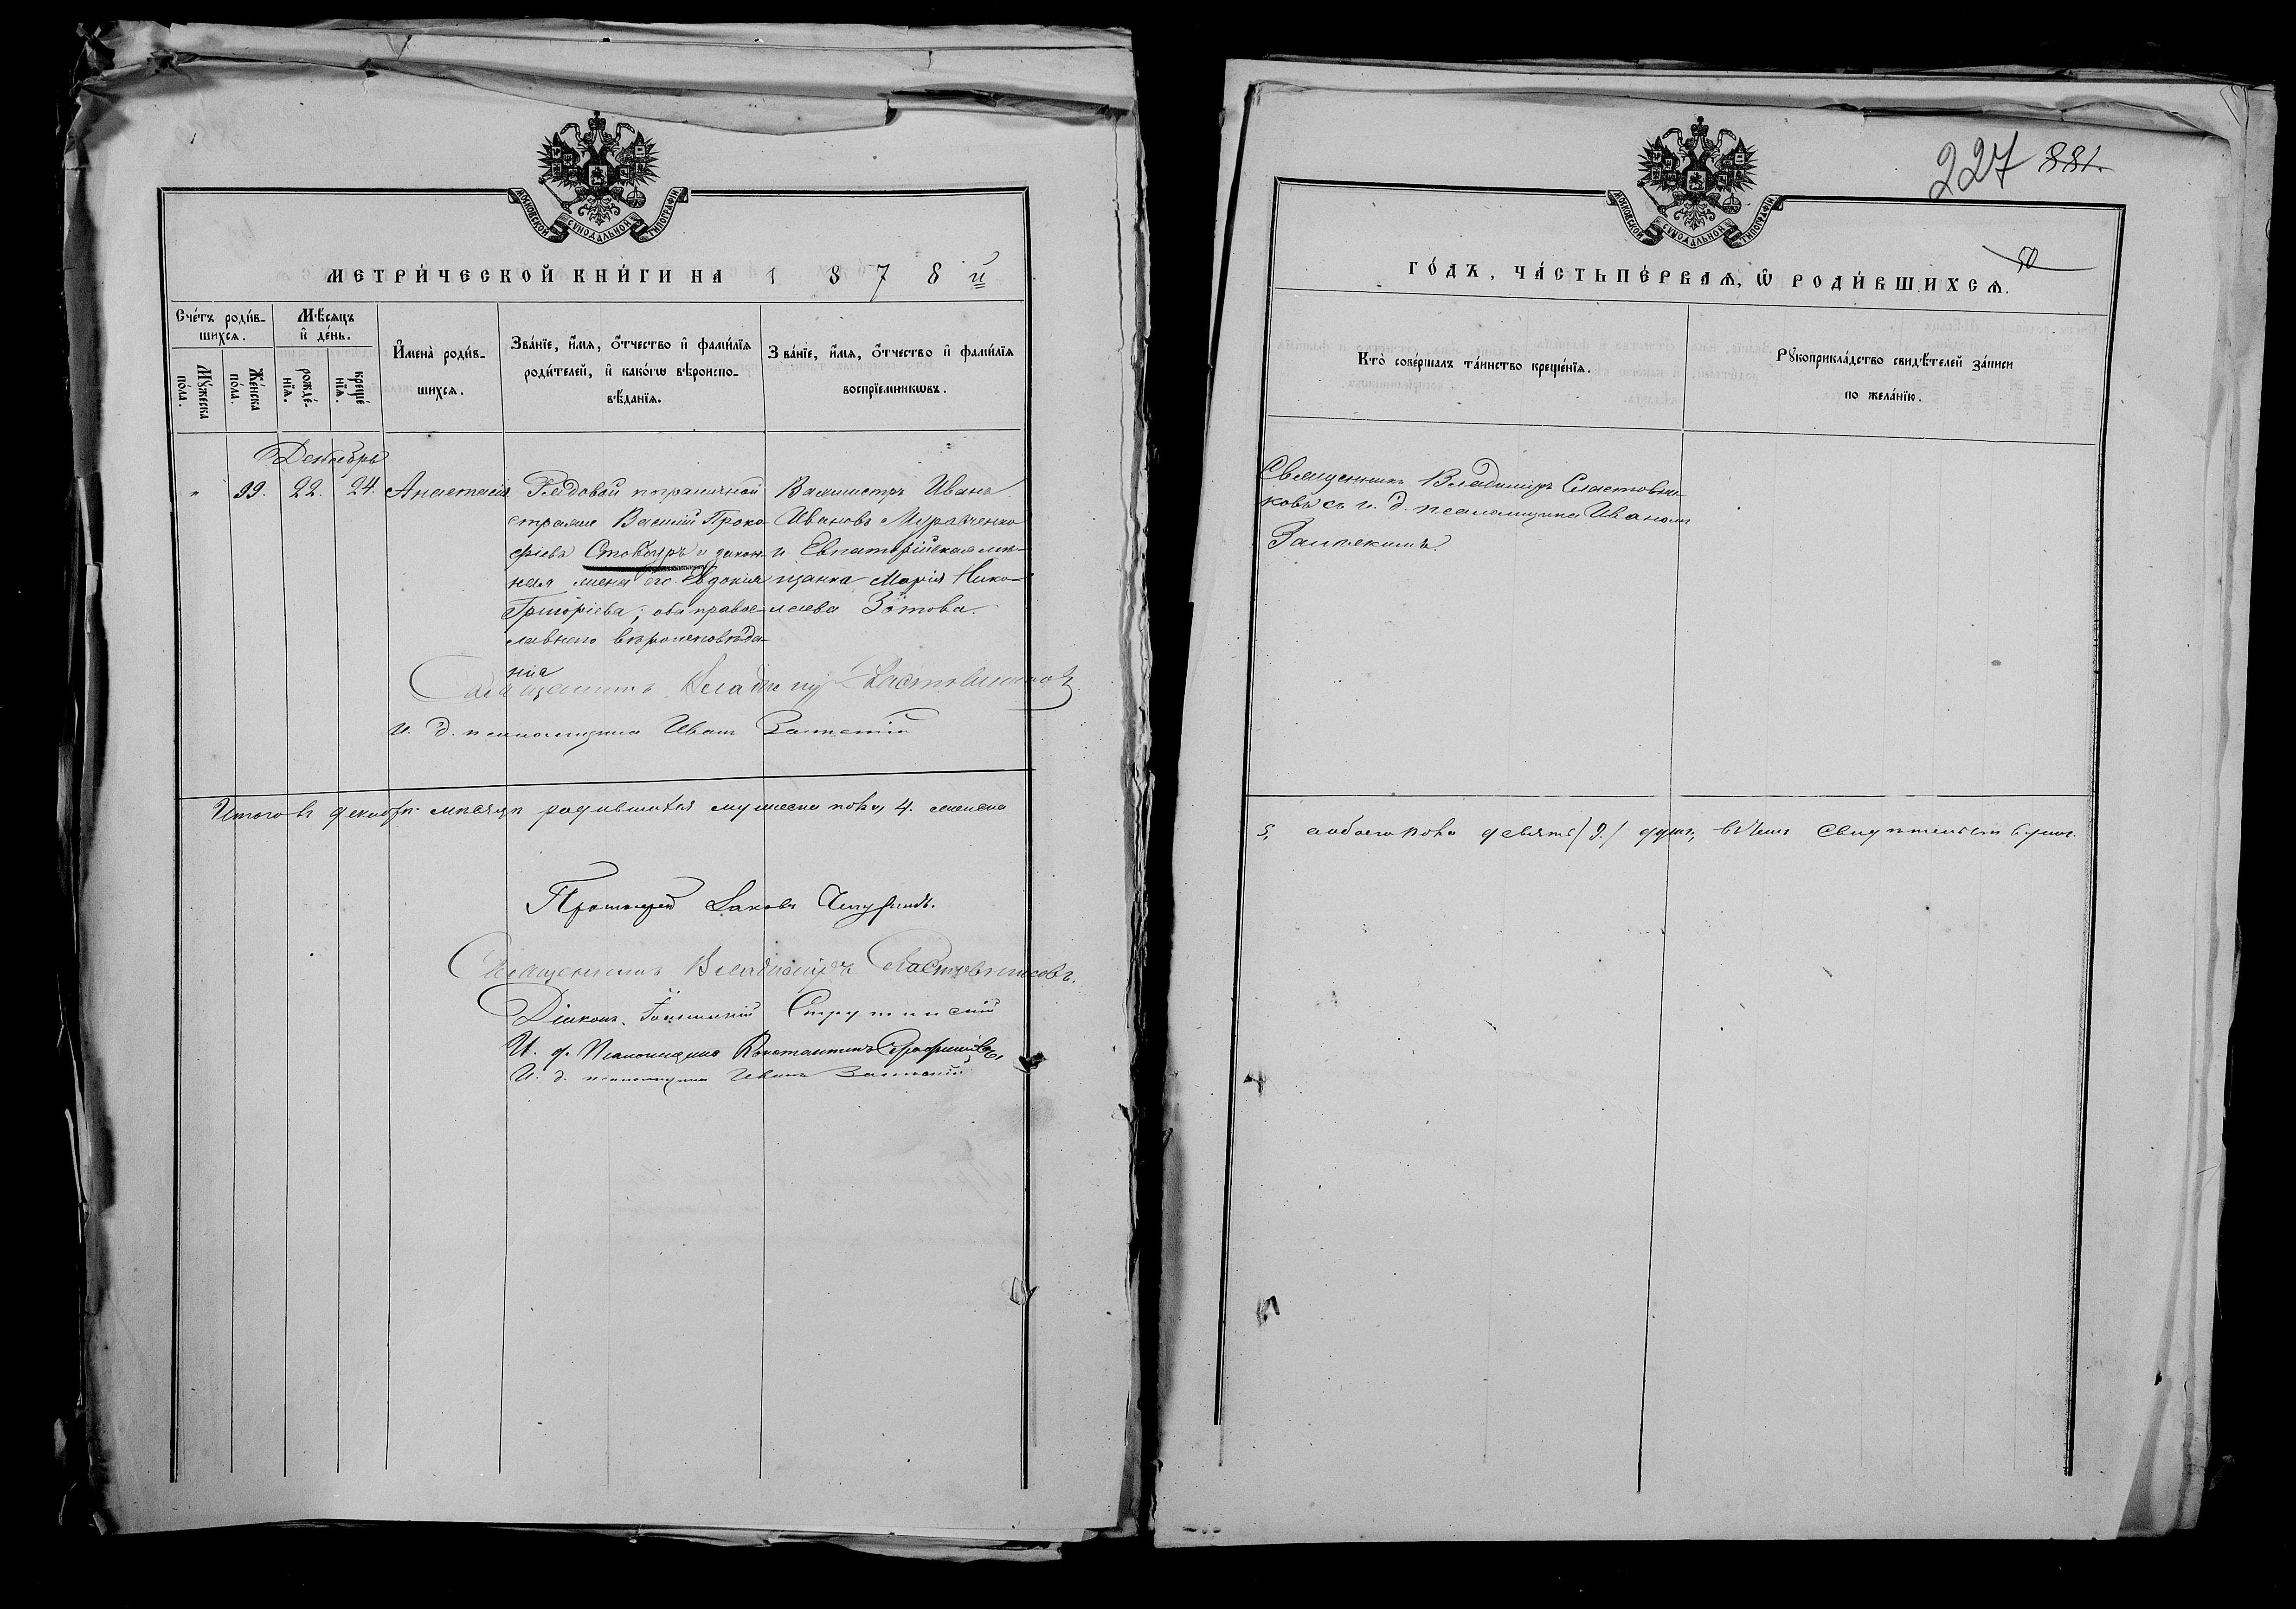 МОСКОВСКОЙ СУНОДАЛЬНОЙ ТИПОГРАФІИ
МЕТРИ́ЧЕСКОЙ КНИ́ГИ НА 1 8 7 8 й
Сче́тъ роди́в-
шихсѧ.
Мꙋ́жеска
по́ла.
Же́нска
по́ла.
Мѣ́сѧцъ
и҆ де́нь.
рожде́-
нїѧ.
креще́
нїѧ.
И҆мена̀ роди́в-
шихсѧ.
Зва́нїе, и҆́мѧ, ѻ҆́тчество и҆ фами́лїѧ
роди́телей, и҆ како́гѡ вѣ́роиспо-
вѣ́данїѧ.
Зва́нїе, и҆́мѧ, ѻ҆́тчество и҆ фами́лїѧ
воспрїе́мникѡвъ.
Декабрь
" 99. 22. 24. Анастасія
Рядовой пограничной
стражи Василій Проко-
фіевъ и закон-
ная жена его Евдокія
Григоріева; оба правос-
лавнаго вѣроисповѣда-
нія
Вахмистръ Иванъ
Ивановъ Муравченко
и Евпаторійская мѣ-
щанка Марія Нико-
лаева Зотова.
Священникъ Владимір Сластовниковъ
И. д. псаломщика Иванъ
Итого въ декабрѣ мѣсяцѣ родившихся мужеска пола, 4. женска
Протоіерей Іаковъ
Священникъ Владиміръ Сластовниковъ.
Діаконъ
И. д. Псаломщика Константинъ
И. д. псаломщика Иванъ
227 881.
50
МОСКОВСКОЙ СУНОДАЛЬНОЙ ТИПОГРАФІИ
ГО́ДЪ, ЧА́СТЬ ПЕ́РВАѦ, Ѽ РОДИ́ВШИХСѦ.
Кто̀ соверша́лъ та́инство креще́нїѧ.
Рꙋкоприкла́дство свидѣ́телей за́писи
по жела́нїю.
Священникъ Владиміръ Сластовни-
ковъ съ и. д. псаломщика Иваномъ
5, а обоего пола девять /9./ душъ, въ чемъ свидѣтельствуемъ.